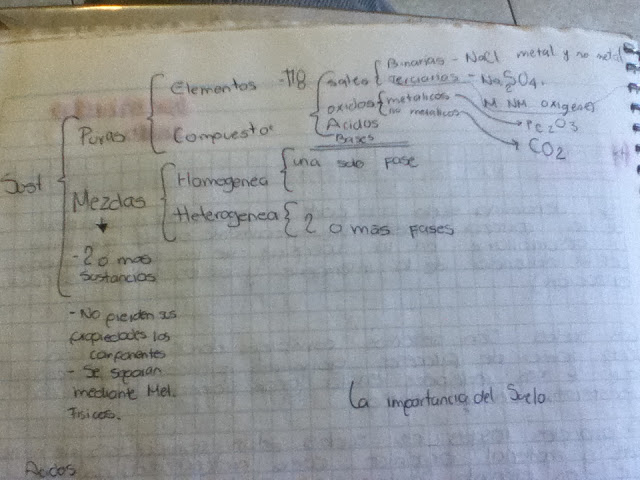 Sust
Puras
Elementos - 118
Compuestos
Sales
Binarias - NaCl metal y no metal
Terciarias - Na2SO4.
M. NM. oxigeno
oxidos
metalicos
no metalicos
Fe2O3
CO2
Acidos
Bases
Mezclas
Homogenea
una sola fase
Heterogenea
2 o más fases
- 2 o mas
sustancias
- No pierden sus
propiedades los
componentes
- Se separan
mediante Met.
Fisicos.
La importancia del Suelo
Acidos